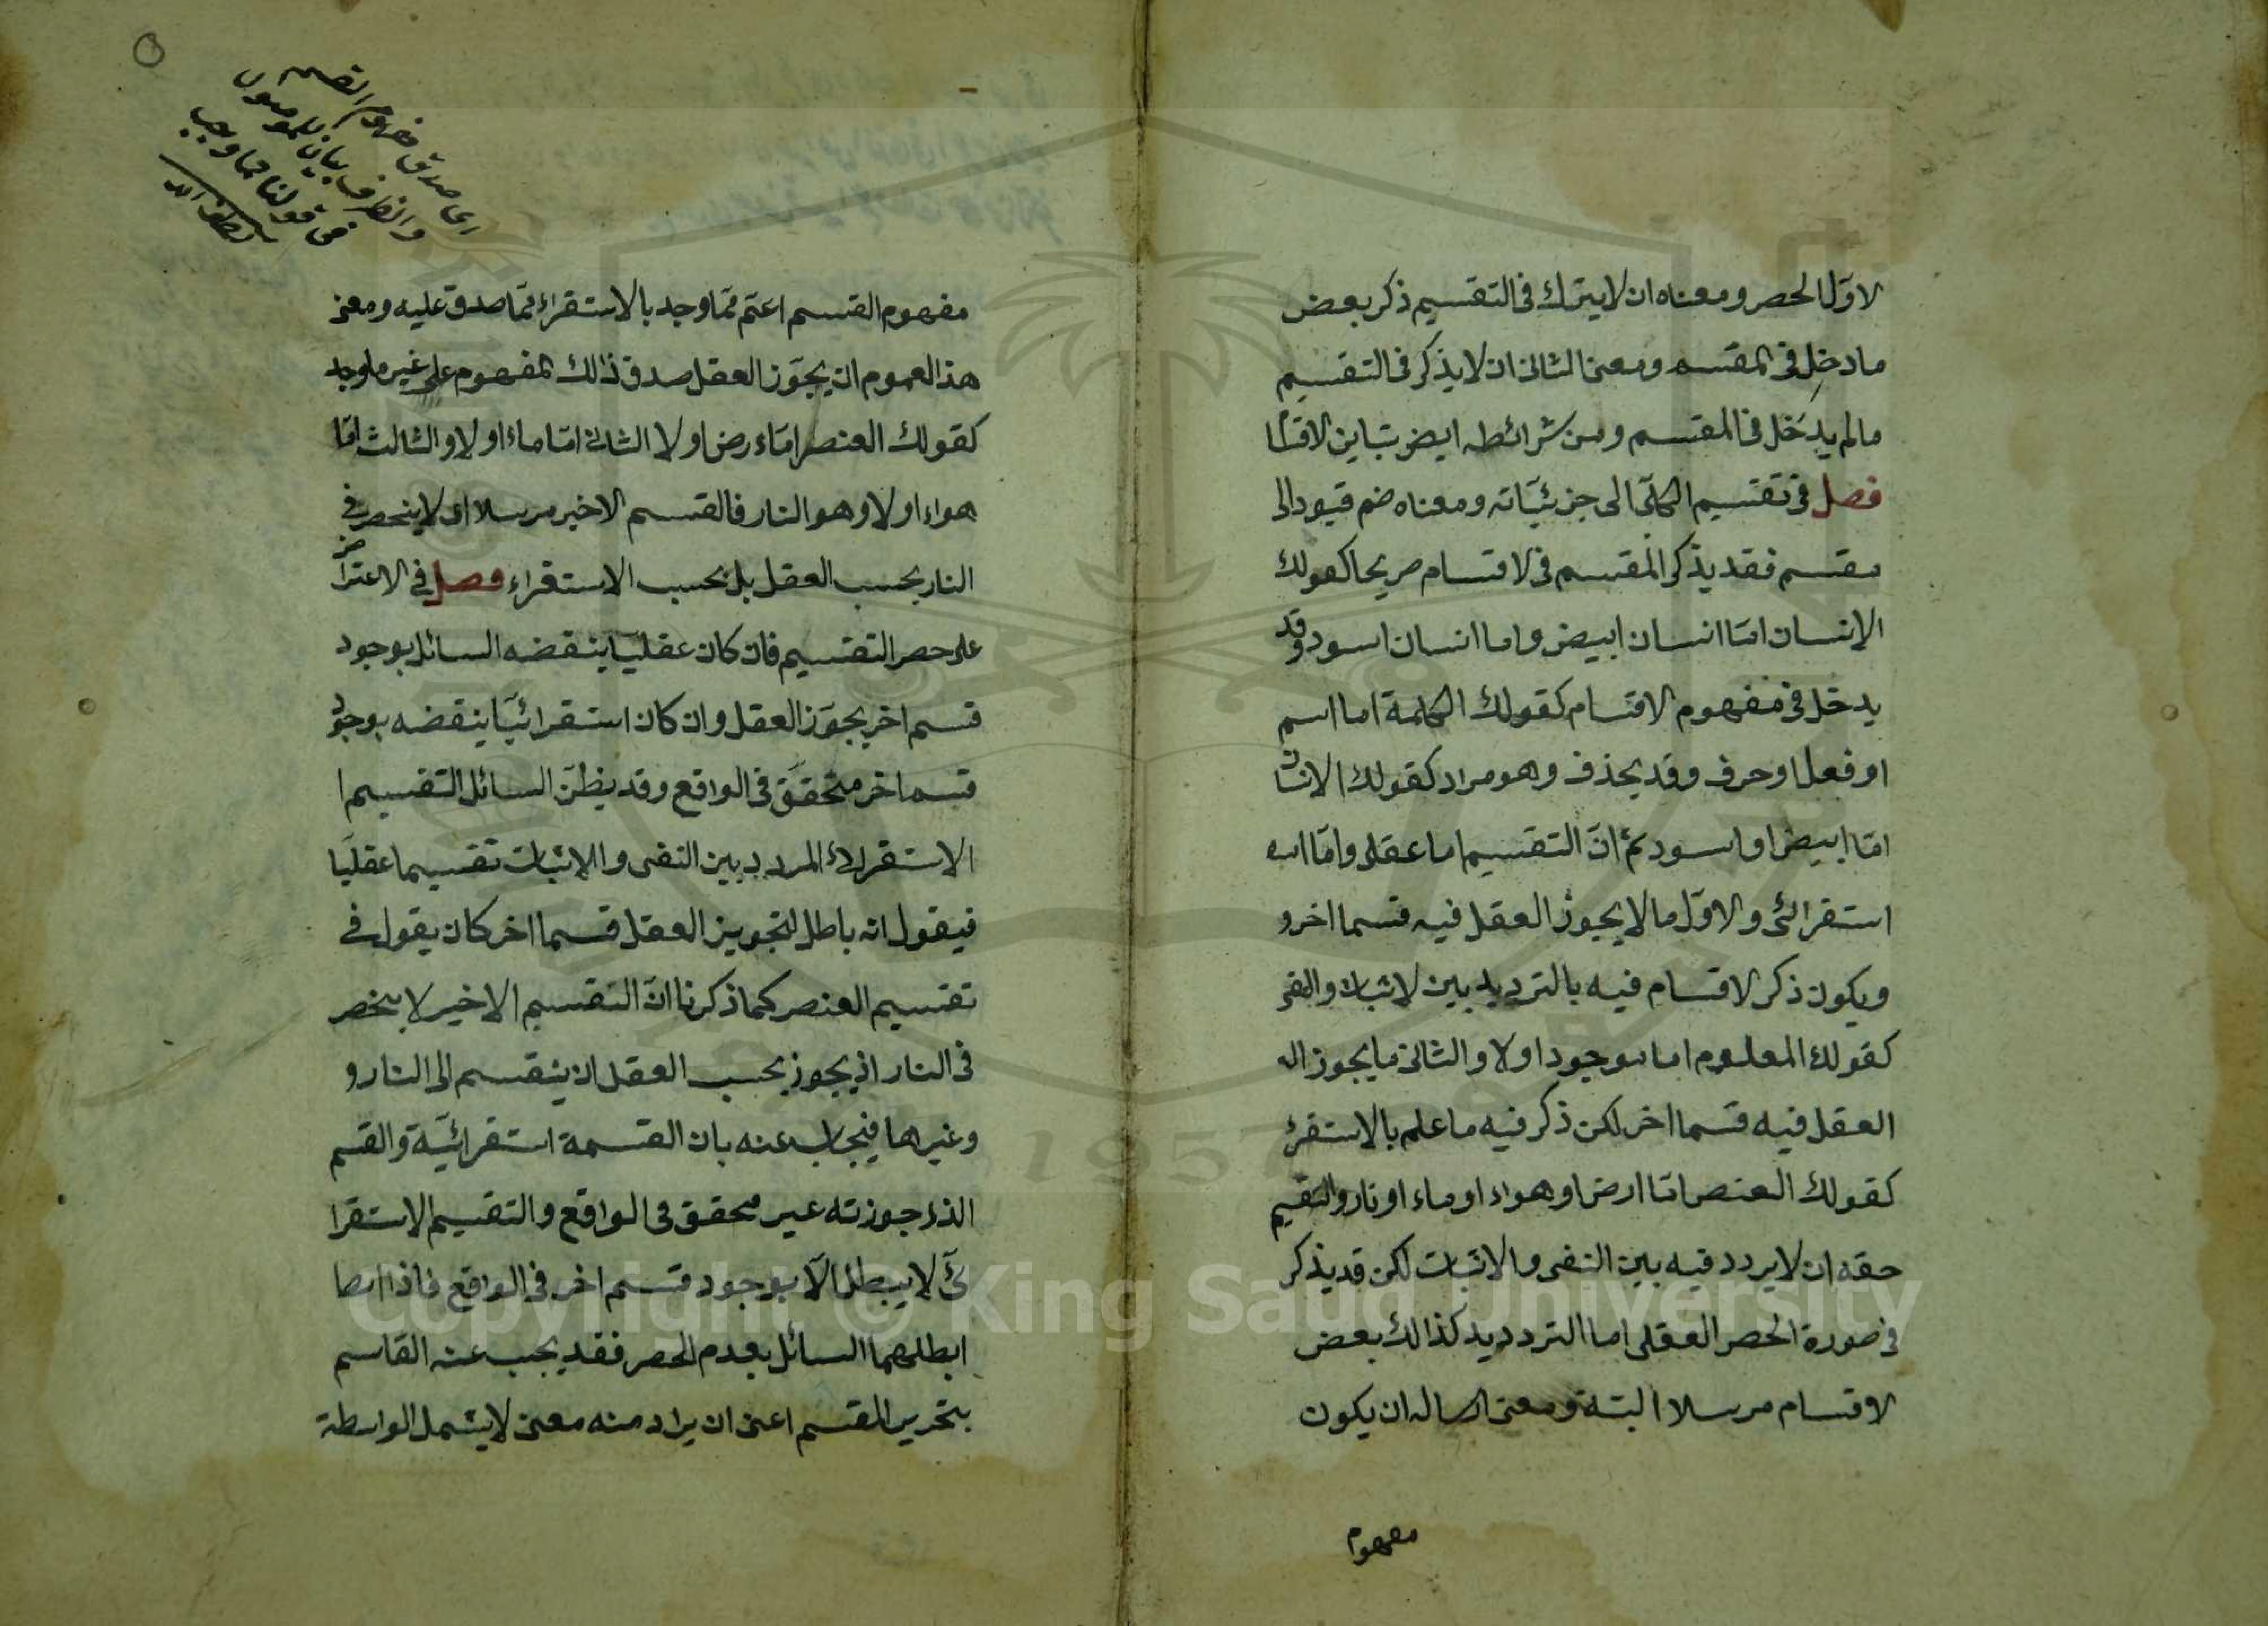 لاوّل الحصر ومعناه ان لا يترك فى التقسيم ذكر بعض
ما دخل فى المقسم ومعنى الثانى ان لا يذكر فى التقسيم
مالم يدخل فى المقسم ومن شرائطه ايض تباين الاقسا
فصل فى تقسيم الكلّى الى جزئيّاته ومعناه ضم قيود الى
مقسم فقد يذكر المقسم فى لاقسام صريحا كقولك
الانسان امّا انسان ابيض واما انسان اسود وقد
يدخل فى مفهوم الاقسام كقولك الكلمة اما اسم
او فعل او حرف وقد يحذف وهو مراد كقولك الانسان
امّا ابيض او اسود ثم انّ التقسيم اما عقلى وامّا اسـ
استقرائى والاوّل مالا يجوز العقل فيه قسما اخر و
ويكون ذكر لاقسام فيه بالترديد بين لاثبات والنفى
كقولك المعلوم اما موجود اولا والثانى ما يجوز الـ
العقل فيه قسما اخر لكن ذكر فيه ما علم بالاستقرئ
كقولك العنصر امّا ارض او هواء او ماء او نار والتقسيم
حقه ان لا يردد فيه بين النفى والاثبات لكن قد يذكر
فى صورة الحصر العقلى اما الترد ديد كذالك بعض
لاقسام مرسلا البتة ومعنى ارساله ان يكون
مفهوم
اى ما صدق مفهوم القسم
والظرف بيان للموصول
فى قولنا مما وجد
لطف الله
مفهوم القسم اعمّ ممّا وجد بالاستقراء ممّا صدق عليه ومعنى
هذ العموم ان يجوّز العقل صدق ذالك المفهوم على غير ما وجد
كقولك العنصر امّاء رض او لا الثانى امّا ماء او لا والثالث امّا
هواء او لا وهو النار فالقسم الاخير مرسلا اى لا ينحصر فى
النار بحسب العقل بل بحسب الاستقراء فصل فى الاعتراض
على حصر التقسيم فان كان عقليّا ينقضه السائل بوجود
قسم اخر يجوّز العقل وان كان استقرائيّا ينقضه بوجود
قسم اخر متحقّق فى الواقع وقد يظنّ السائل التقسيم ا
الاستقرائ المردد بين النفى والاثبات تقسيما عقليّا
فيقول انه باطل لتجويز العقل قسما اخر كان يقول فى
تقسيم العنصر كما ذكرنا انّ التقسيم الاخير لا ينحصر
فى النار اذ يجوز بحسب العقل ان ينقسم الى النار و
وغيرها فيجاب عنه بان القسمة استقرائيّة والقسم
الذى جوزته غير محقق فى الواقع والتقسيم الاستقرا
ئى لا يبطل الّا بوجود قسم اخر فى الواقع فاذا ابطا
ابطلهما السائل بعدم الحصر فقد يجيب عنه القاسم
بتحرير المقسم اعنى ان يراد منه معنى لا يشمل الواسطة
Copyright © King Saud University
1957